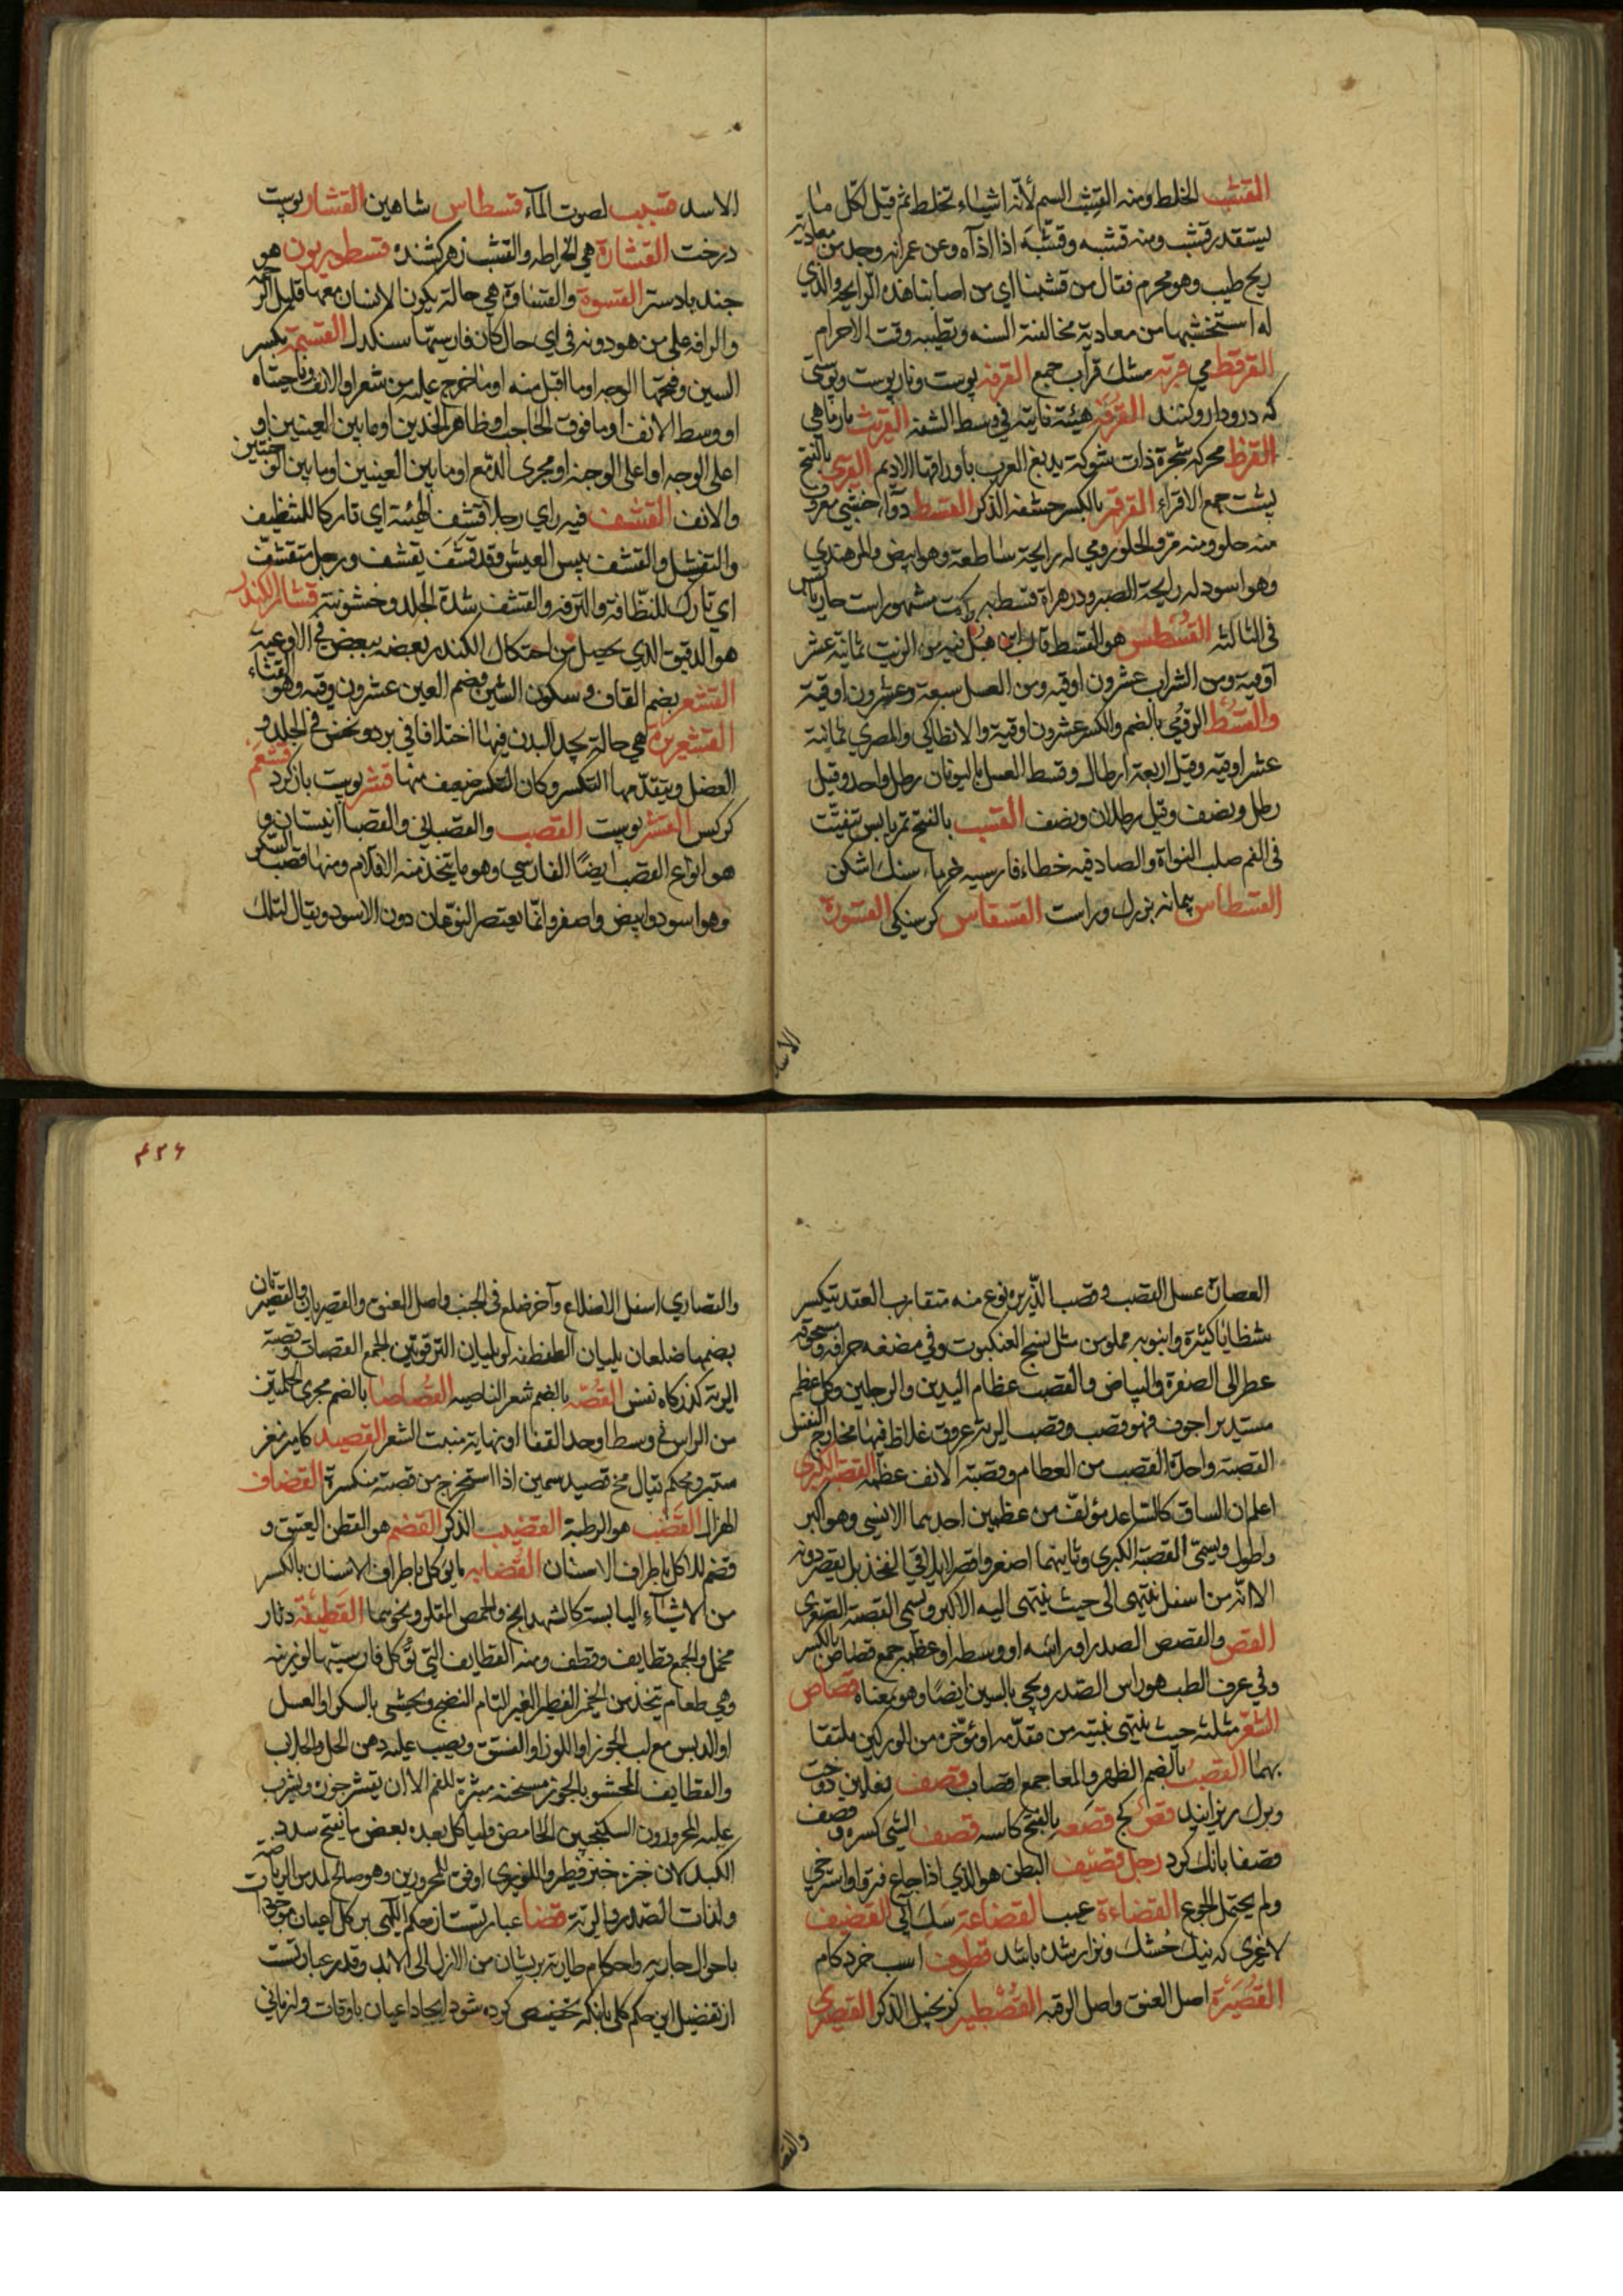 القشب الخلط ومنه القشب السم لأنه اشياء تخلط ثم قيل لكل ما
يستقذر قشب ومنه قشبه وقشبه اذا اذاه وعن عمر انه وجد من معاوية
ريح طيب وهو محرم فقال من قشبنا اي من اصابنا هذه الرايحة والذي
له استخبثها من معاوية مخالفة السنه وتطيبه وقت الاحرام
القرقط مي قربه مشك قراب جمع القرفه پوست ونار پوست وپوستى
كه درو دارو كنند القرفه هيئة ناتية في وسط الشفة القريث مارماهى
القرظ محركه شجرة ذات شوكت يدبغ العرب بأوراقها الاديم القرى بالفتح
پشت جمع الاقراء القرقم بالكسر حشفة الذكر القسط دواء خشبي معروف
منه حلو ومنه مر والحلو رومي له رايحة ساطعة وهو ابيض والمر هندي
وهو اسود له رايحة الصبر ودر هراة قسط به مشهور است حار يابس
في الثالثه القسطس هو القسط قال ابن هبل فيه من الزيت ثمانية عشر
اوقية ومن الشراب عشرون اوقيه ومن العسل سبعة وعشرون اوقية
والقسط الرومي بالضم والكسر عشرون اوقية والانطاكي والمصري ثمانية
عشر اوقيه وقيل اربعة ارطال وقسط العسل باليونان رطل واحد وقيل
رطل ونصف وقيل رطلان ونصف القسب بالفتح تمر يابس تتفتت
في الفم صلب النواة والصاد فيه خطاء فارسيه خرماء سنك اشكن
القسطاس پيمانه بزرك وراست القسقاس كرسنكى القسورة
الاسد
الاسد قسيب لصوت الماء قسطاس شاهين القشار پوست
درخت القشارة هي الخراطه والقشب زهر كشنده قسطوريون هو
جند بادستر القسوة والقساوة هي حالة يكون لانسان معها قليل الرحمة
والرافة على من هو دونه في اي حال كان فارسيتها سنكدل القسيمة بكسر
السين وفتحها الوجه او ما اقبل منه او ما خرج عليه من شعر او الانف وناحيتاه
او وسط الانف او ما فوق الحاجب او ظاهر الخدين او ما بين العينين او
اعلى الوجه او اعلى الوجنة او مجرى الدمع او ما بين العينين او ما بين الوجنتين
والانف القشف فيه راي رجلا قشف الهيئة اي تاركا للتنظيف
والقشف يبس العيش وقد قشف يقشف ورجل متقشف
اي تارك للنظافة والترفه والقشف شدة الجلد وخشونته قشار الكندر
هو الدقيق الذي يحصل من احتكاك الكندر بعضه ببعض في الاوعية
القشعر بضم القاف و سكون الشين وضم العين عشرون وقيه وهو القثاء
القشعريرة هي حالة يجد البدن فيها اختلافا في برد ونخس في الجلد و
العضل ويتقدمها التكسر وكان التكسر ضعيف منها قشر پوست باز كرد قشعم
كركس القشر پوست القصب والقصباني والقصبا انيستان و
هو انواع القصب ايضا الفارسي وهو ما يتخذ منه الاقلام ومنها قصب السكر
وهو اسود وابيض واصفر وانما يعتصر النوعان دون الاسود ويقال لتلك
العصارة عسل القصب و قصب الذريرة نوع منه متقارب العقد يتكسر
شظايا كثيرة وانبوبه مملو من مثل نسج العنكبوت وفي مضغه حرافه ومسحوقه
عطر الى الصفرة والبياض والقصب عظام اليدين والرجلين وكل عظم
مستدير اجوف فهو قصب وقصب الريه عروق غلاظ فيها مخارج النفس
القصبة واحدة القصب من العظام وقصبة الانف عظمه القصبة الكبرى
اعلم ان الساق كالساعد مؤلف من عظمين احديهما الانسي وهو اكبر
واطول ويسمى القصبة الكبرى وثانيهما اصغر واقصر لا يلاقي الفخذ بل يقصر دونه
الا انه من اسفل ينتهي الى حيث ينتهى اليه الاكبر ويسمى القصبة الصغرى
القص والقصص الصدر او راسه او وسطه او عظمه جمع قصاص بالكسر
وفي عرف الطب هو راس الصدر ويجي بالسين ايضا وهو بمعناه قصاص
الشعر مثلثه حيث ينتهى نبته من مقدمه او مؤخره من الوركين ملتقا
بهما القصب بالضم الظهر والمعا جمع اقصاب قصف نعلين دوخت
وبرك ريزانيد قص كج قصعه بالفتح كاسه قصف الشي كسره وقصف
قصفا بانك كرد رجل قصيف البطن هو الذي اذا جاع فتر واسترخى
ولم يحتمل الجوع القضاءة عيب القضاعة سك آبى القضيف
لاغرى كه نيك خشك ونزار شده باشد قطوف اسب خرد كام
القصيرة اصل العنق واصل الرقبه القصطبير كزنجبيل الذكر القصيرى
والقص
٤٣٦
والقصارى اسفل الاضلاع وآخر ضلع في الجنب واصل العنق والقصريان والقصيريان
بضمها ضلعان يليان الطفطفه او يليان الترقوتين الجمع القصبات وقصبة
الرية كذركاه نفس القصة بالضم شعر الناصيه القصاصا بالضم مجرى الجلمين
من الراس في وسطه او حد القفا او نهاية منبت الشعر القصيد كامير مغز
ستبر ومحكم يقال مخ قصيد سمين اذا استخرج من قصبة منكسرة القضاف
الهزال القضب هو الرطبة القضيب الذكر القضم هو القطن العتيق و
قضم للاكل باطراف الاسنان القضابه ما يؤكل باطراف الاسنان بالكسر
من الاشياء اليابسة كالشهدانج والحمص المقلو ونحوهما القطيفة دثار
مخمل والجمع قطايف وقطف ومنه القطايف التي تؤكل فارسيتها لوزينه
وهي طعام تتخذ من الخمر الفطير الغير التام النضج ويحشى بالسكر او العسل
او الدبس مع لب الجوز او اللوز او الفستق ويصب عليه دهن الحل والجلاب
والقطايف المحشو بالجوز مسخنة مبثرة للفم الا ان يقشر جوزه ويشرب
عليه المحرورون السكنجبين الحامض وليا كل بعده بعض ما يفتح سدد
الكبد لان خبزه خبز فطير واللوزي اوفق للمحرورين وهو صالح لمدمن الرياضة
ولذات الصدر والرية قضا عبارتست از حكم الهى بر كل اعيان موجودات
باحوال جاريه واحكام طاريه بريشان من الازل الى الابد وقدر عبارتست
از تفضيل اين حكم كلى بانكه تخصيص كرده شود ايجاد اعيان باوقات وازمانى